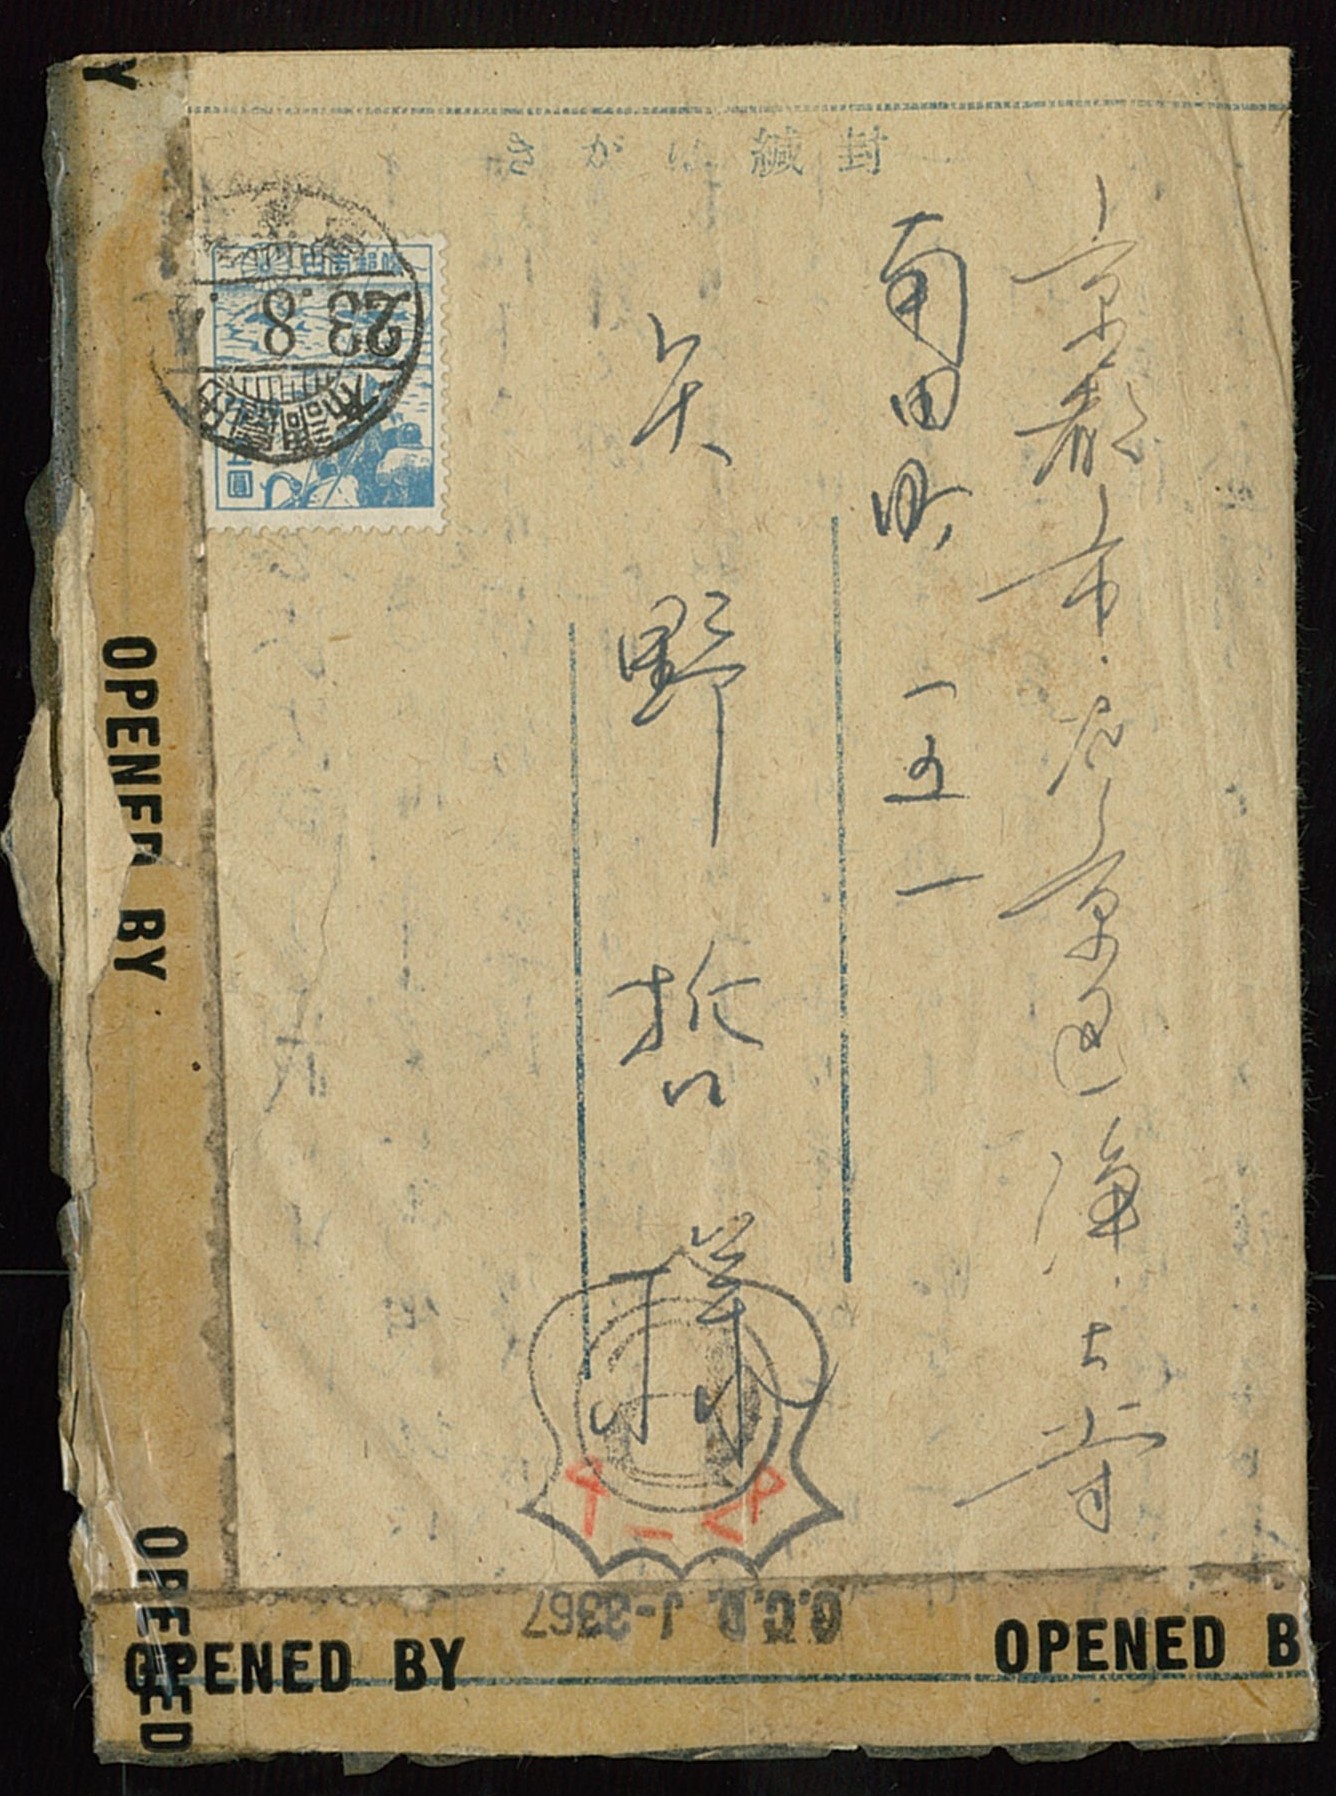 封緘はがき
京都市左京区浄土寺
南田町一五一
矢野哲様
日本郵便
23.8.
Y
OPENED BY
OPENED
OPENED BY
OPENED B
C.C.D. J-3367